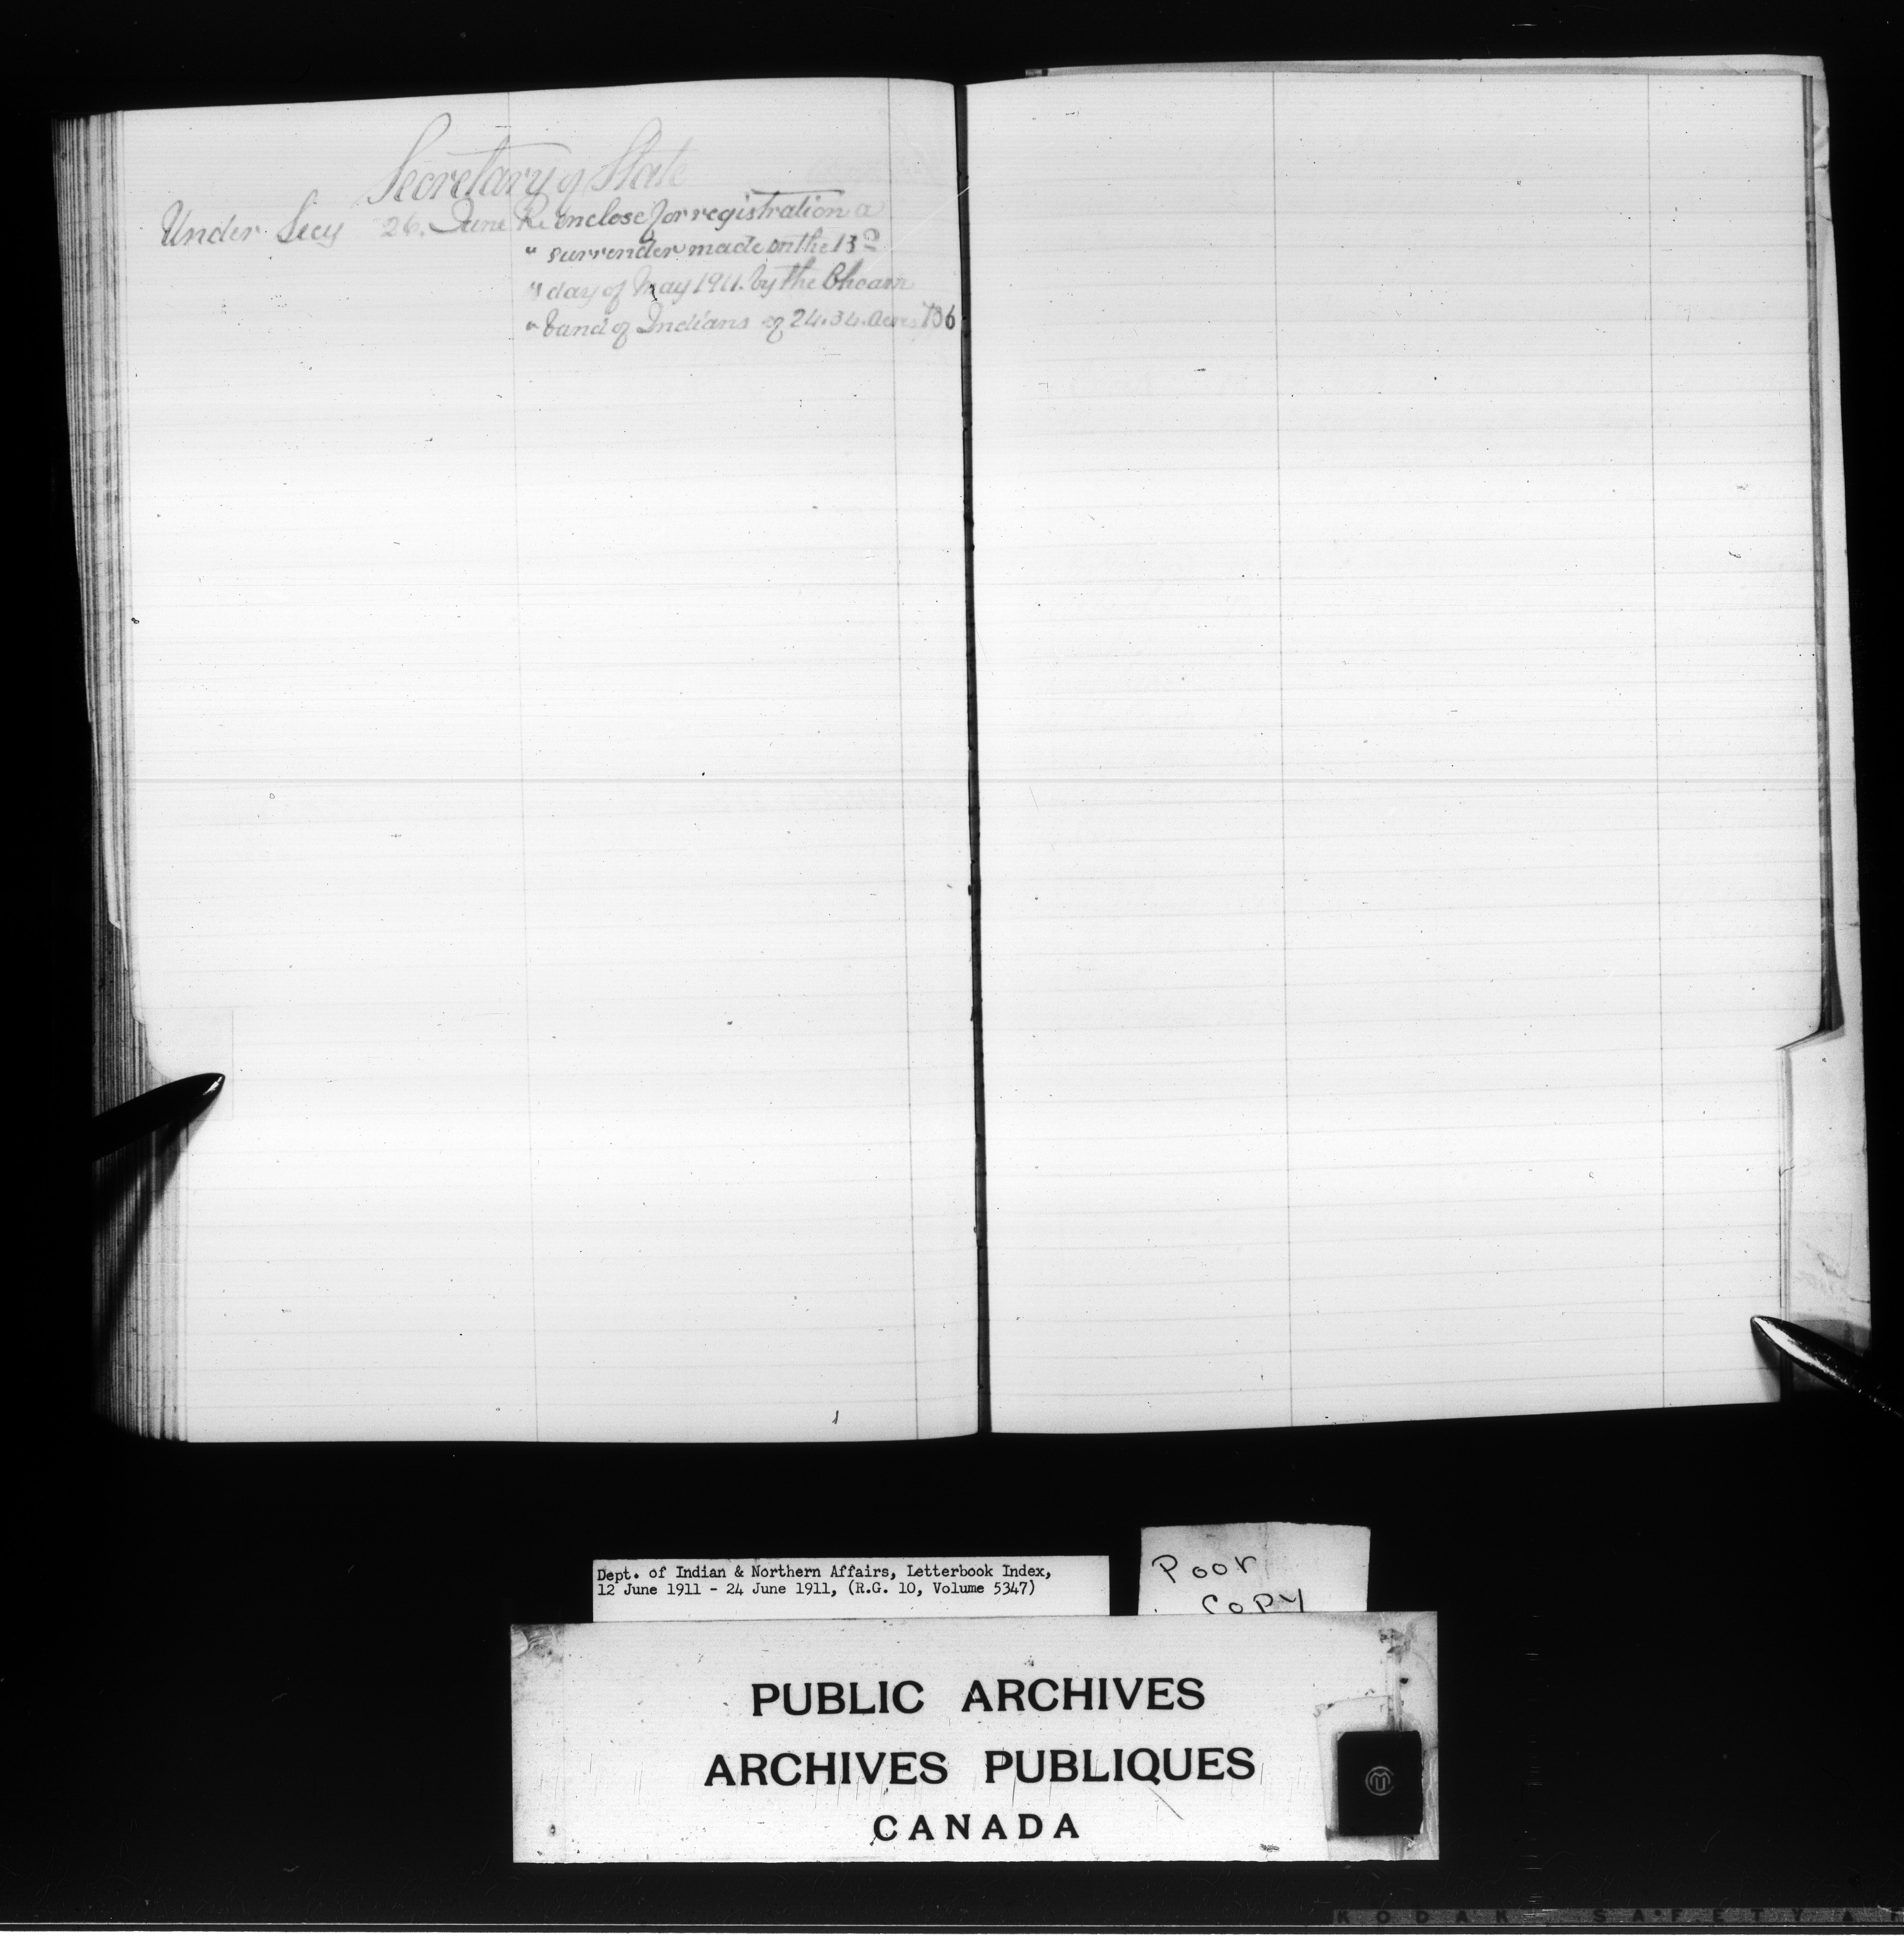 Secretary of State
Under Secy 26. June Re enclose for registration a
" surrender made on the 13
" day of May 1911. by the
" band of Indians of 24.34. acres 736
Dept. of Indian & Northern Affairs, Letterbook Index,
12 June 1911 - 24 June 1911, (R.G. 10, Volume 5347)
Poor
Copy
PUBLIC ARCHIVES
ARCHIVES PUBLIQUES
CANADA
KODAK SAFETY